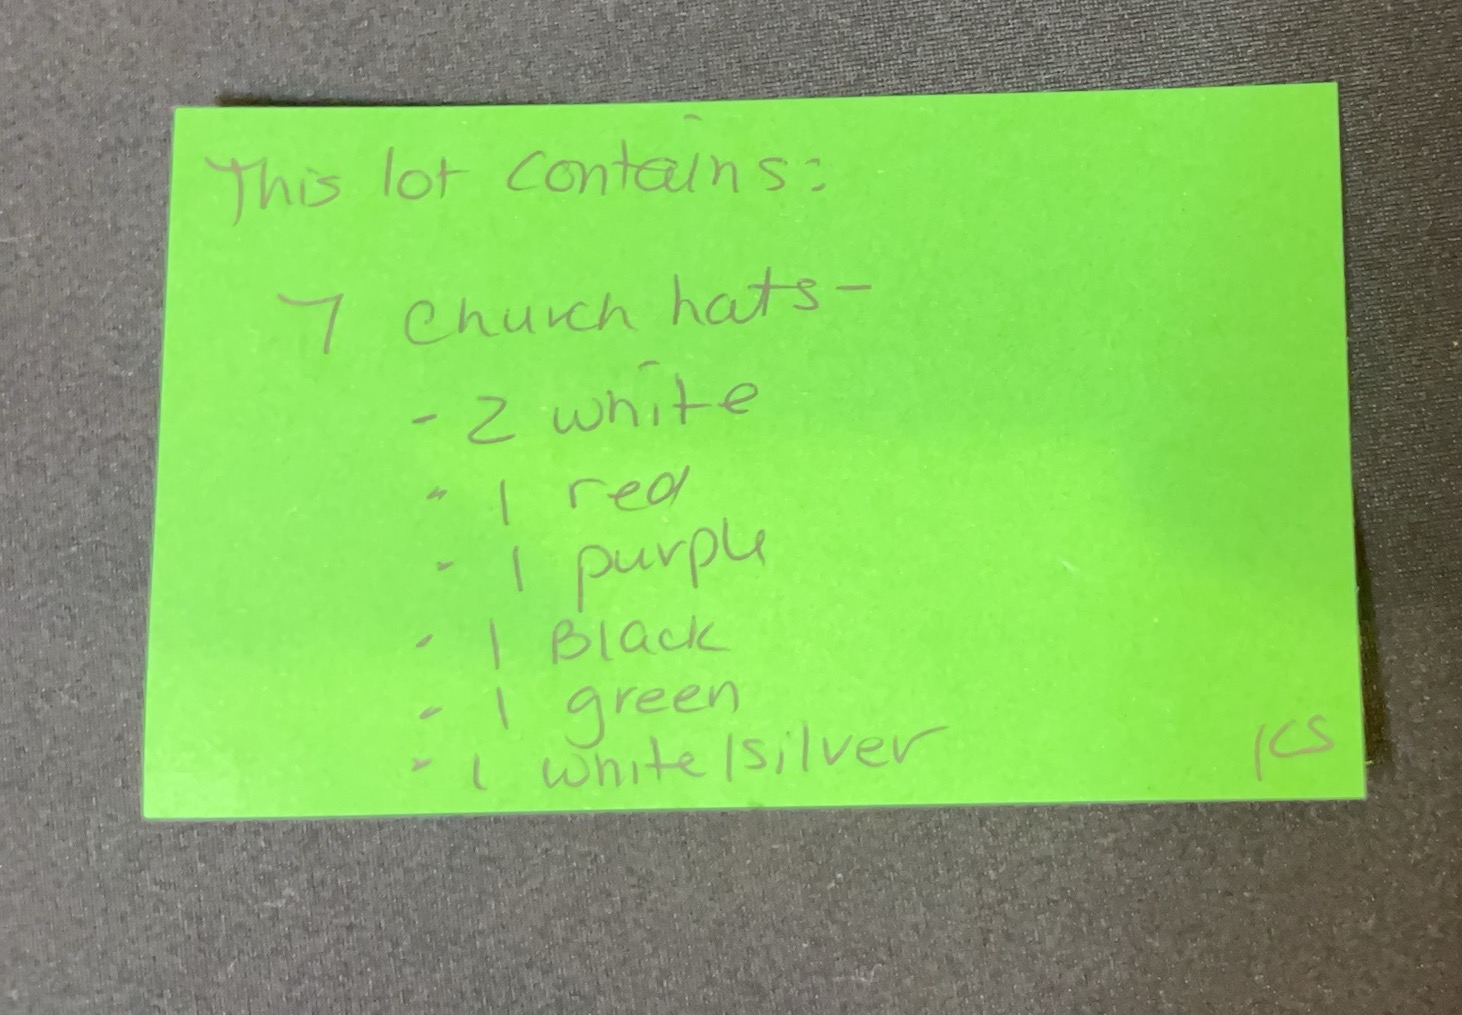 This lot contains:
7 Church hats-
- 2 white
- 1 red
- 1 purple
- 1 Black
- 1 green
- 1 white/silver
KS